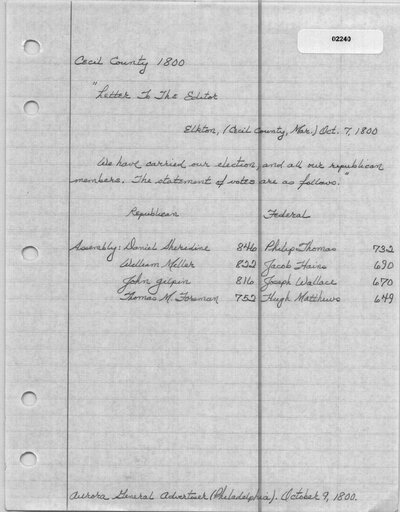 02240
Cecil County 1800
"Letter To The Editor
Elkton, (Cecil County, Mar.) Oct. 7, 1800
We have carried our election, and all our republican
members. The statement of votes are as follows."
Republican Federal
Assembly: Daniel Sheredine 846 Philip Thomas 732
William Miller 822 Jacob Hains 690
John Gilpin 816 Joseph Wallace 670
Thomas M. Foreman 752 Hugh Matthews 649
Aurora General Advertiser (Philadelphia). October 9, 1800.